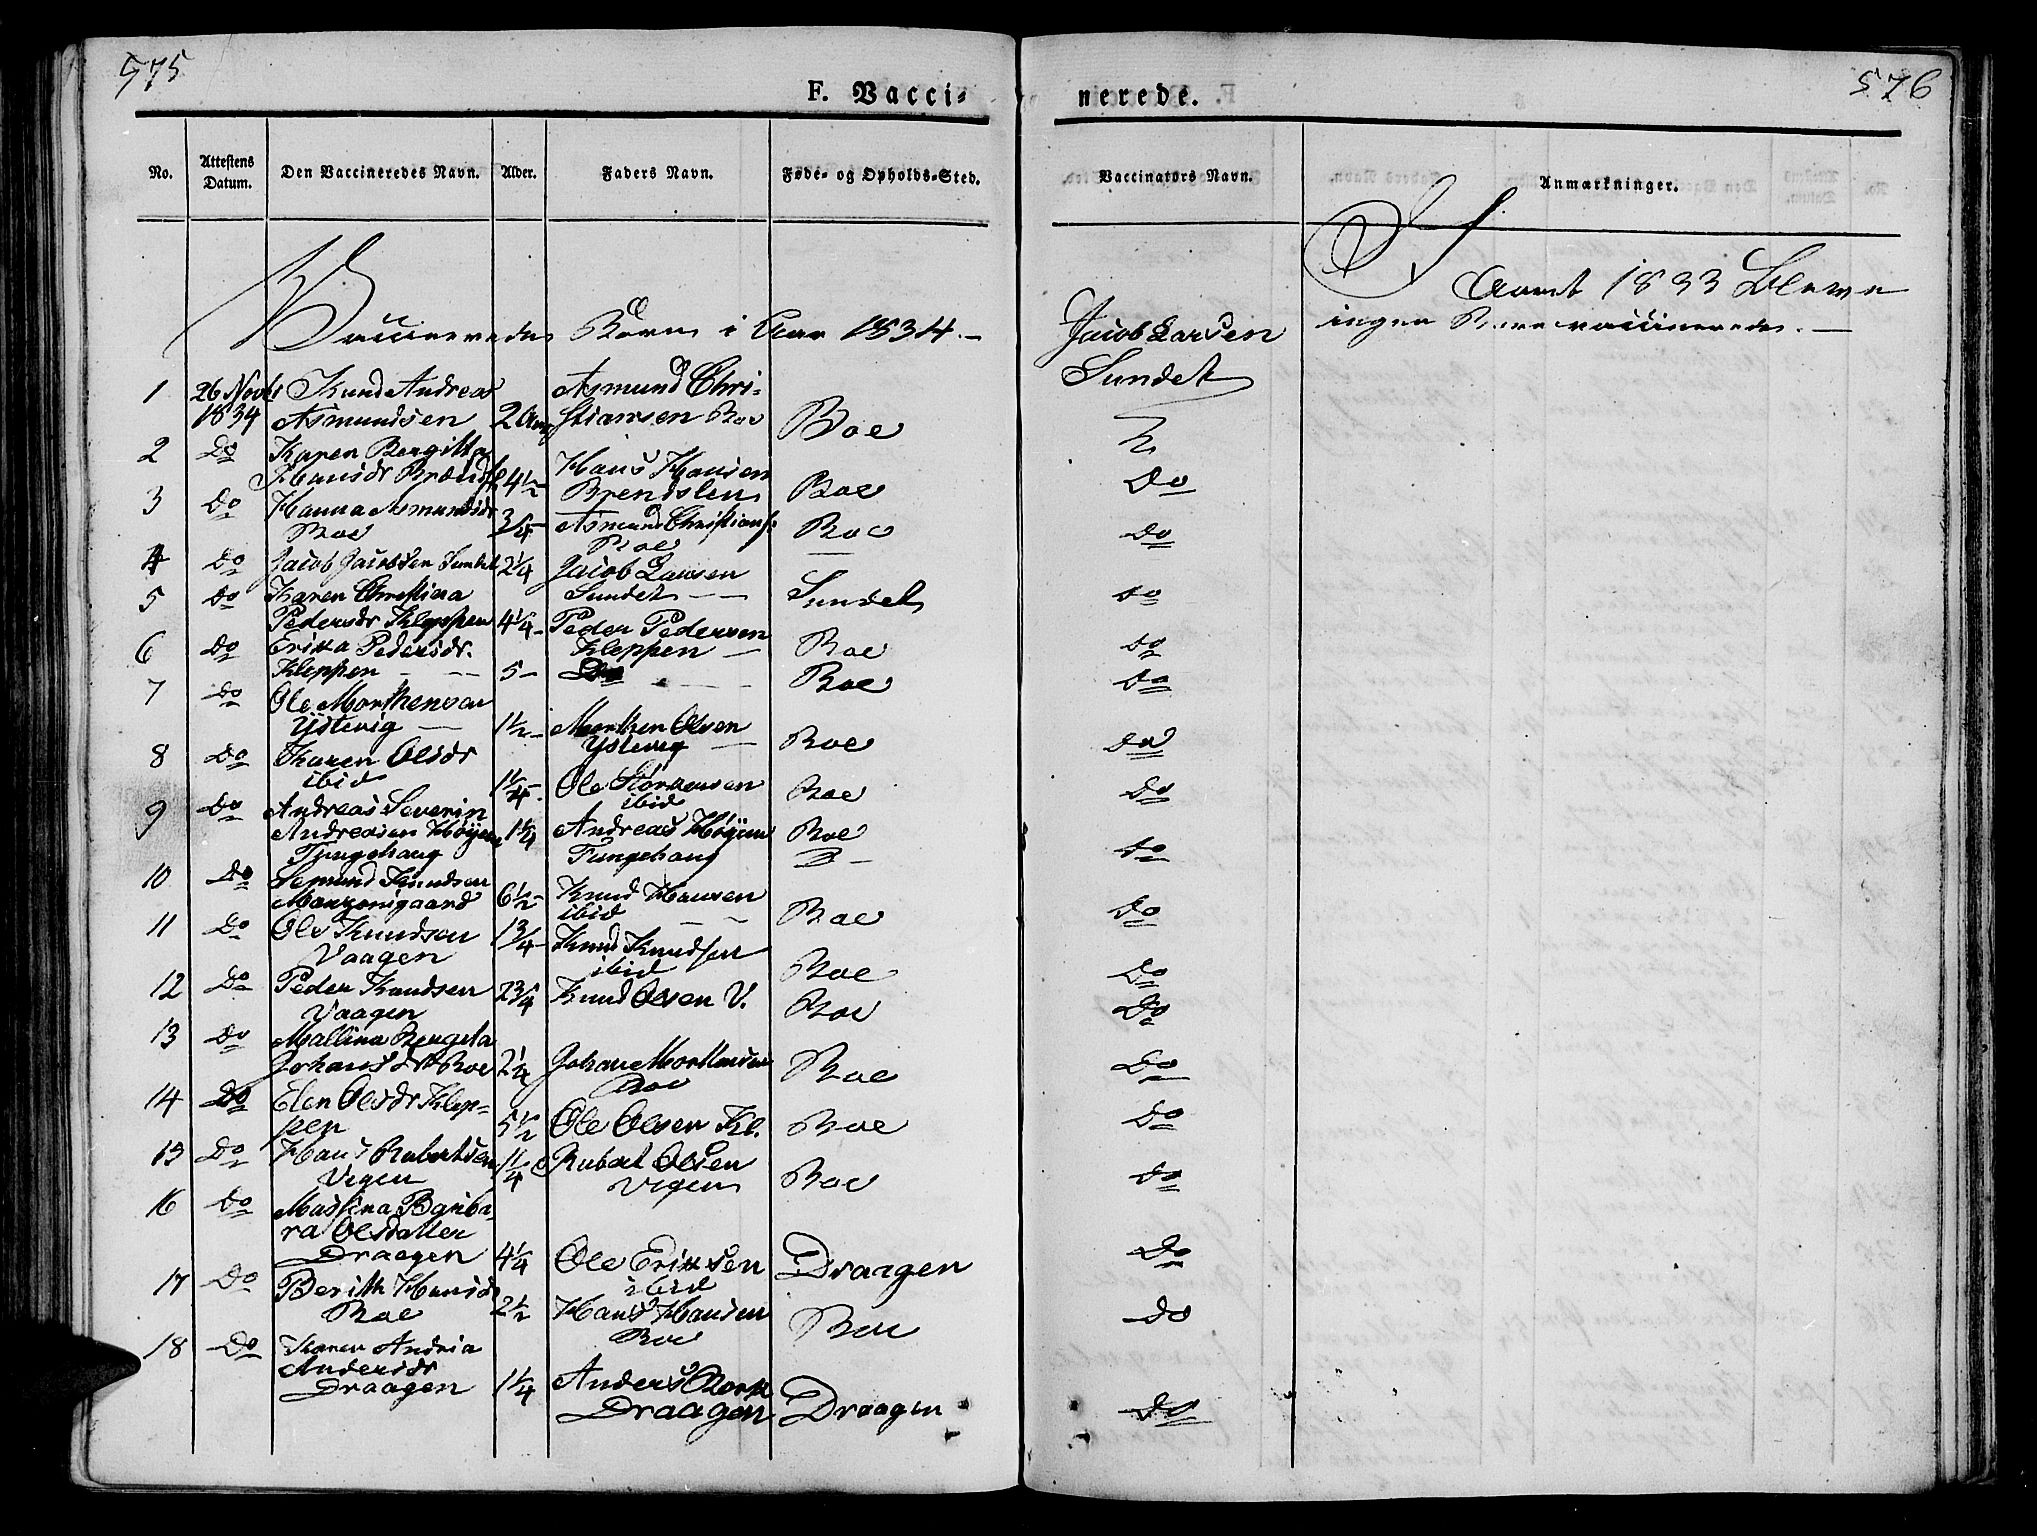 575
576
F. Vacci-
nerede.
No.
Attestens Datum.
Den Vaccineredes Navn.
Alder.
Faders Navn.
Føde- og Opholds-Sted.
Vaccinators Navn.
Anmærkninger.
Vaccinerede Børn i Aar 1834.-
I Aaret 1833 bleve
ingen Børn vaccinerede. —
Jacob Larsen
Sundet
1 26 Novbr 1834 Knud Andreas Asmundsen 2 Aar Asmund Christiansen Boe Boe
2 Do Karen Bergitta Hansdr 4 1/2 Hans Hansen Brendslen Boe Do
3 Do Hanna Asmundsdr Boe 3/4 Asmund Christians: Boe Boe Do
4 Do Jacob Jacobsen Sundet 2 1/4 Jacob Larsen Sundet Sundet Do
5 Do Karen Christina Pedersdr Kleppen 4 1/4 Peder Pedersen Kleppen Boe Do
6 Do Erika Pedersdr. Kleppen 5 Do Boe Do
7 Do Ole Morthensen Ystevig 1 1/2 Morthen Olsen Ystevig Boe Do
8 Do Karen Olsdr ibid 1 1/4 Ole ibid Boe Do
9 Do Andreas Severin Andreasen Høyem Tungehaug 1 1/4 Andreas Høyem Tungehaug Boe Do
10 Do Knudsen 6 1/2 Knud Hansen ibid Boe Do
11 Do Ole Knudsen Vaagen 1 3/4 Knud Knudsen ibid Boe Do
12 Do Peder Knudsen Vaagen 2 3/4 Knud Olsen V. Boe Do
13 Do Mallina Bergita Johansdtr Boe 2 1/4 Johan Morthensen Boe Boe Do
14 Do Elen Olsdr Kleppen 5 1/2 Ole Olsen Kl. Boe Do
15 Do Hans Robertsen Vegen 1 1/4 Robert Olsen Vegen Boe Do
16 Do Massina Barbara Olsdatter Draagen 4 1/4 Ole Eriksen ibid Draagen Do
17 Do Berith Hansdr Boe 2 1/2 Hans Hansen Boe Boe Do
18 Do Karen Andria Andersdr Draagen 1 1/4 Anders Draagen Draagen Do